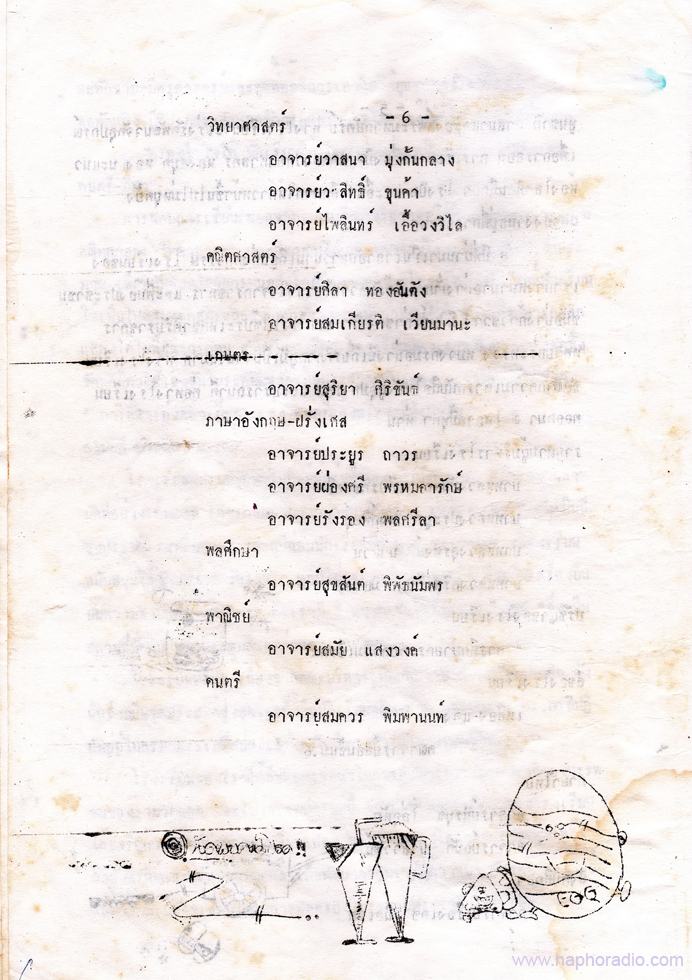 - 6 -
วิทยาศาสตร์
อาจารย์วาสนา มุ่งกั้นกลาง
อาจารย์วรสิทธิ์ ขุนค้า
อาจารย์ไพลินทร์ เอื้อวงวิไล
คณิตศาสตร์
อาจารย์ศิลา ทองอันตัง
อาจารย์สมเกียรติ เวียนมานะ
เกษตร
อาจารย์สุริยา ศิริขันธ์
ภาษาอังกฤษ-ฝรั่งเศส
อาจารย์ประยูร ถาวร
อาจารย์ผ่องศรี พรหมดารักษ์
อาจารย์รังรอง พลศรีลา
พลศึกษา
อาจารย์สุขสันต์ พิพัธนัมพร
พาณิชย์
อาจารย์สมัย แสงวงค์
ดนตรี
อาจารย์สมควร พิมพานนท์
EGG
www.naphoradio.com